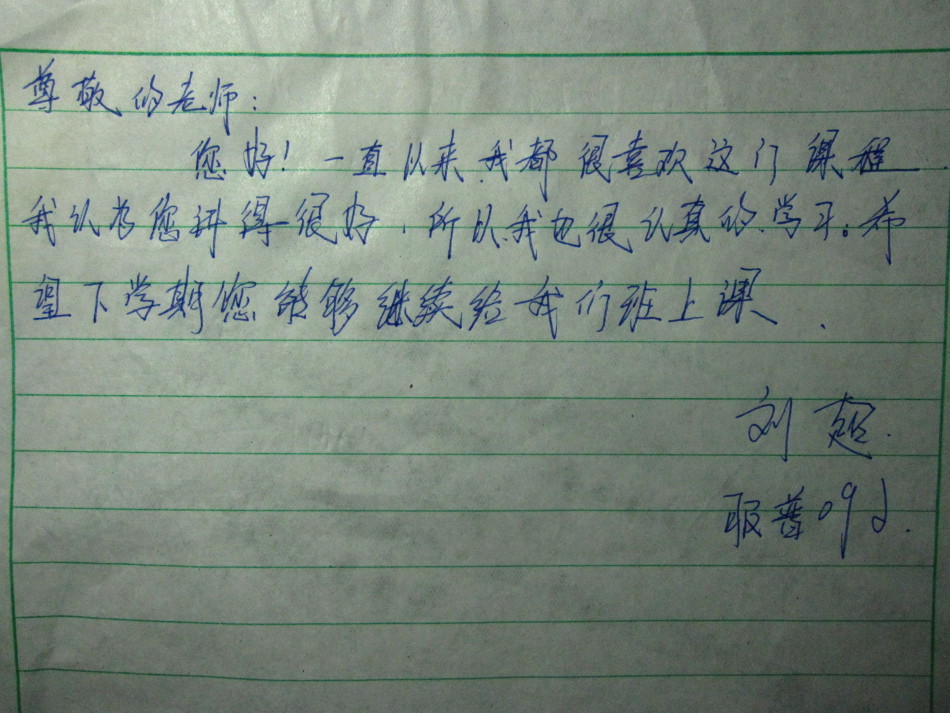 尊敬的老师:
您好!一直以来,我都很喜欢这门课程.
我认为您讲得很好,所以,我也很认真的学习。希
望下学期您能够继续给我们班上课.
刘超.
普09